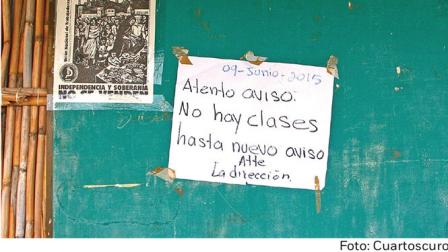 INDEPENDENCIA Y SOBERANIA
NO SE VENDEN
09-Junio-2015
Atento aviso:
No hay clases
hasta nuevo aviso
Atte
La dirección.
Foto: Cuartoscuro